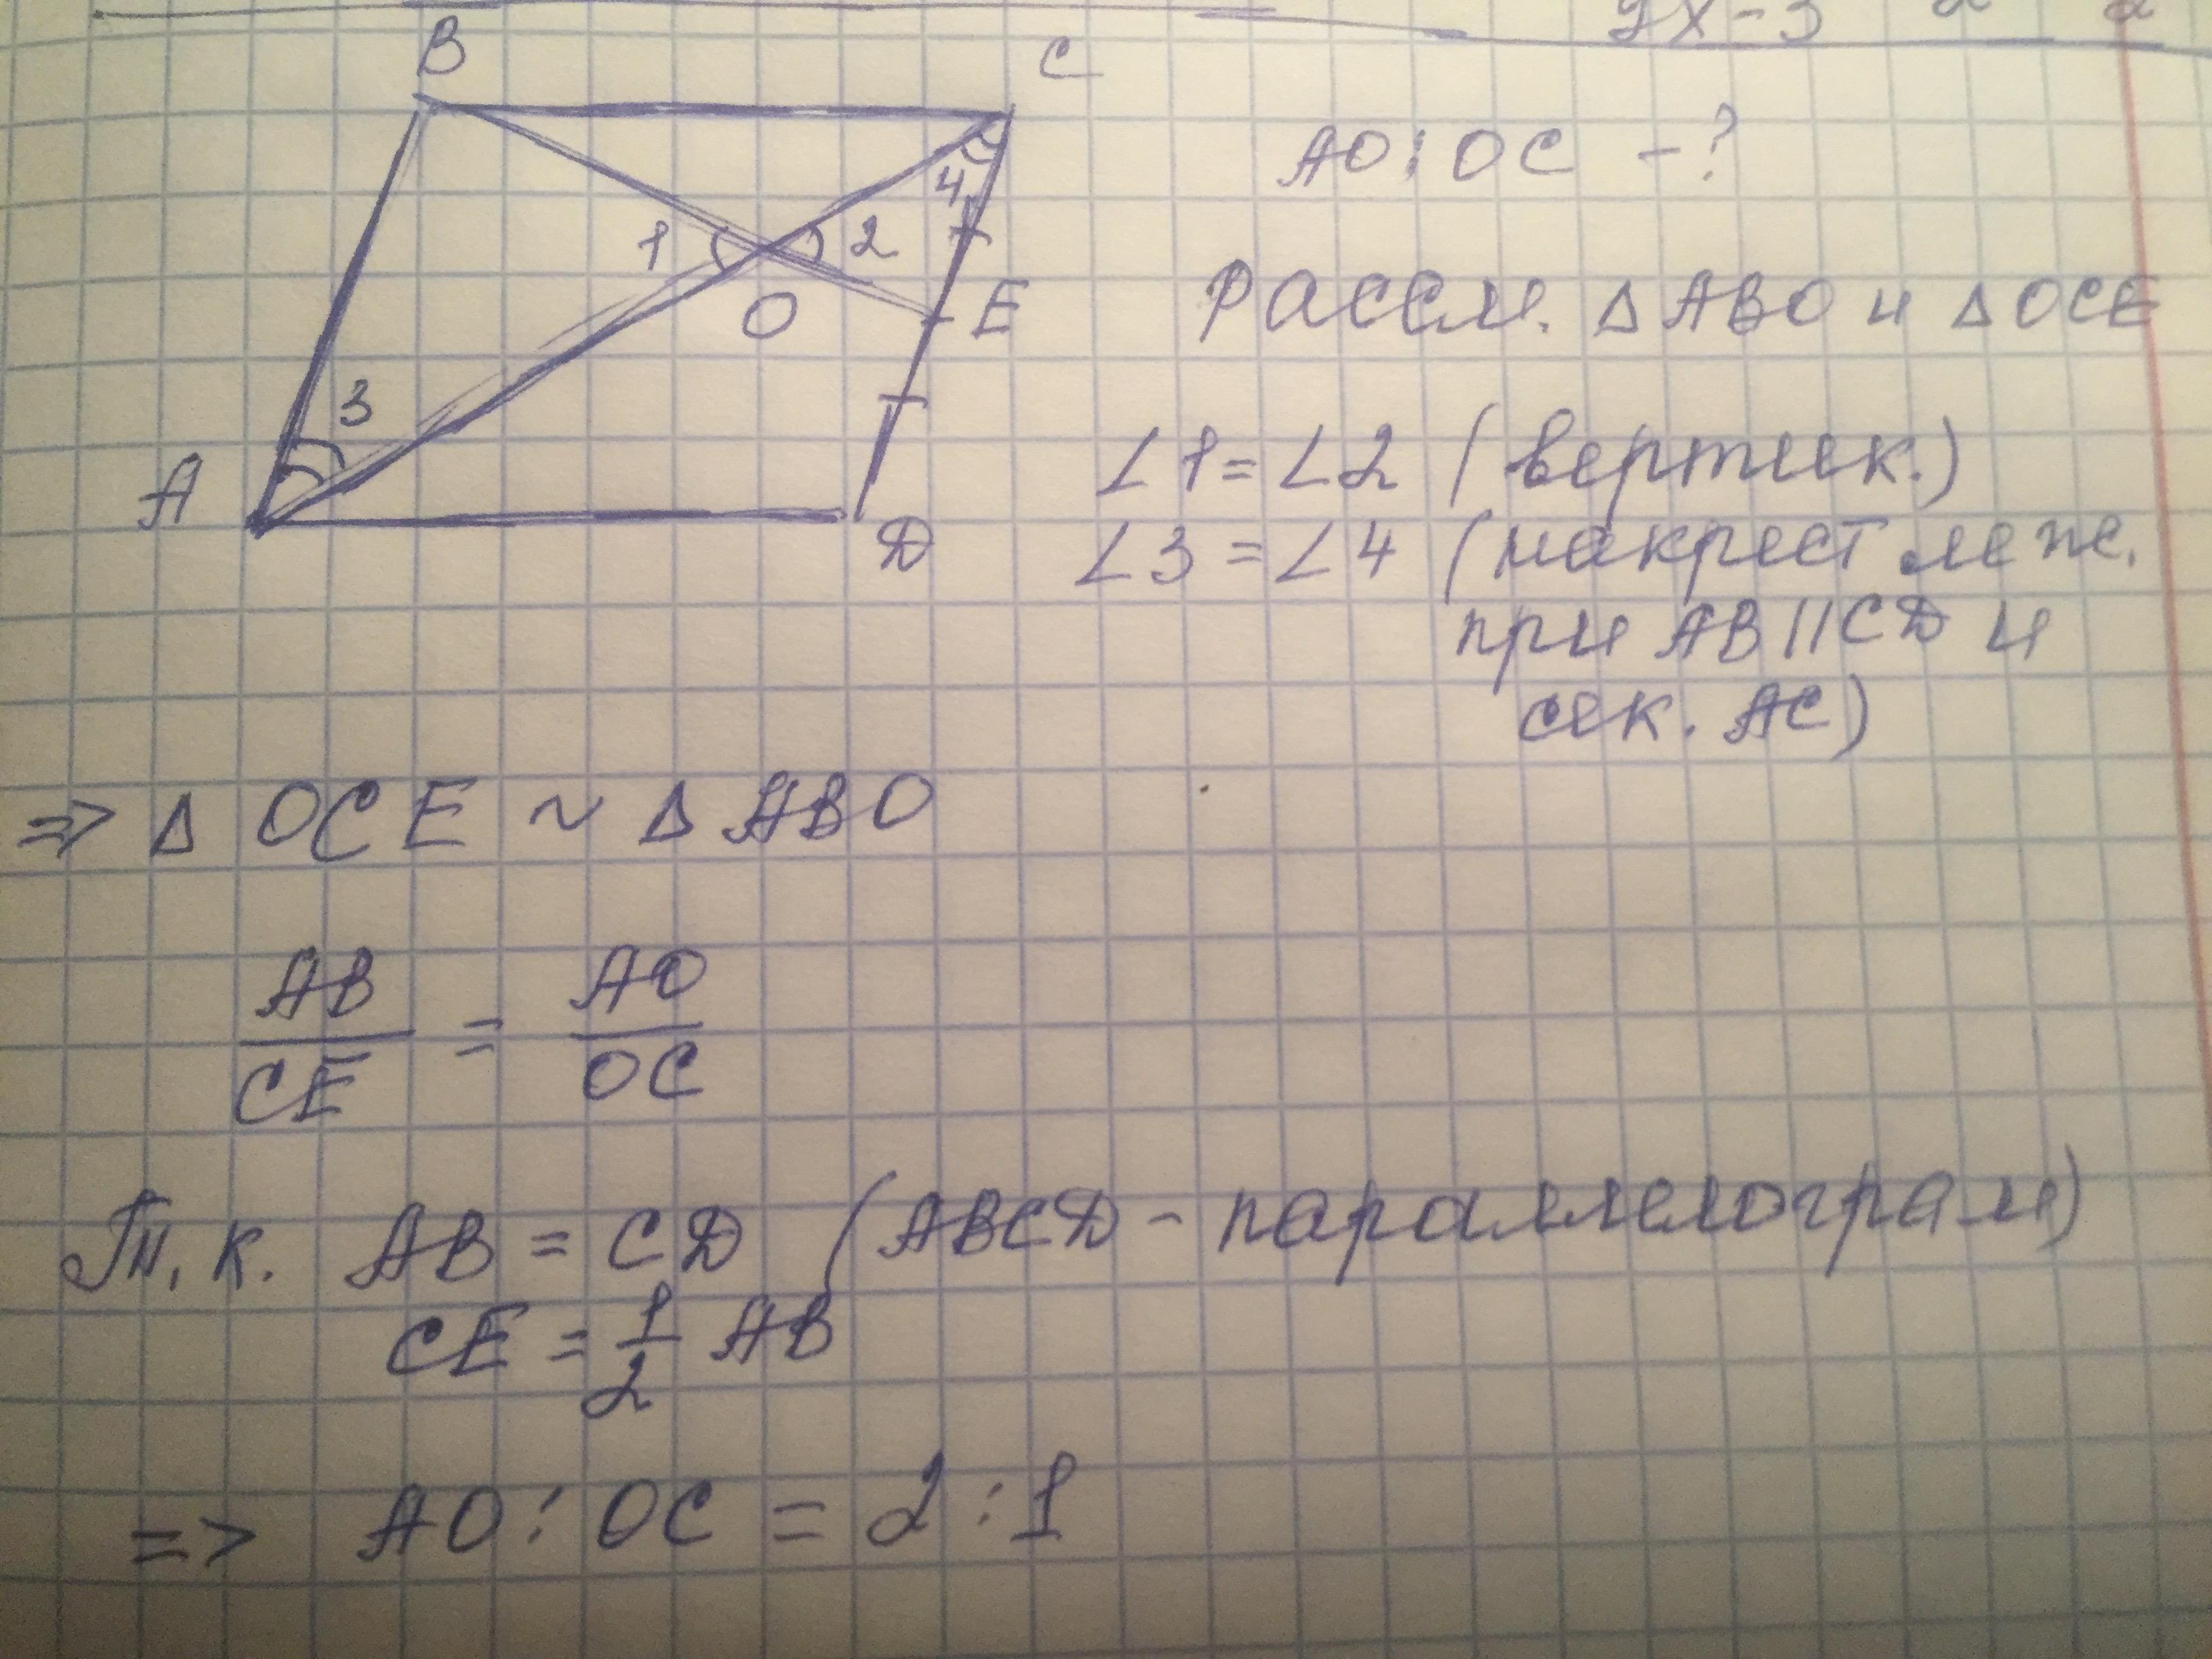 2x-3
B
C
AO:OC -?
1
2
4
O
E
3
A
D
Рассм. △ABO и △OCE
∠1=∠2 (вертик.)
∠3=∠4 (накрест леж.
при AB||CD и
сек. AC)
=> △ OCE ~ △ ABO
AB/CE = AO/OC
Т.к. AB = CD (ABCD - параллелограм)
CE = 1/2 AB
=> AO:OC = 2:1